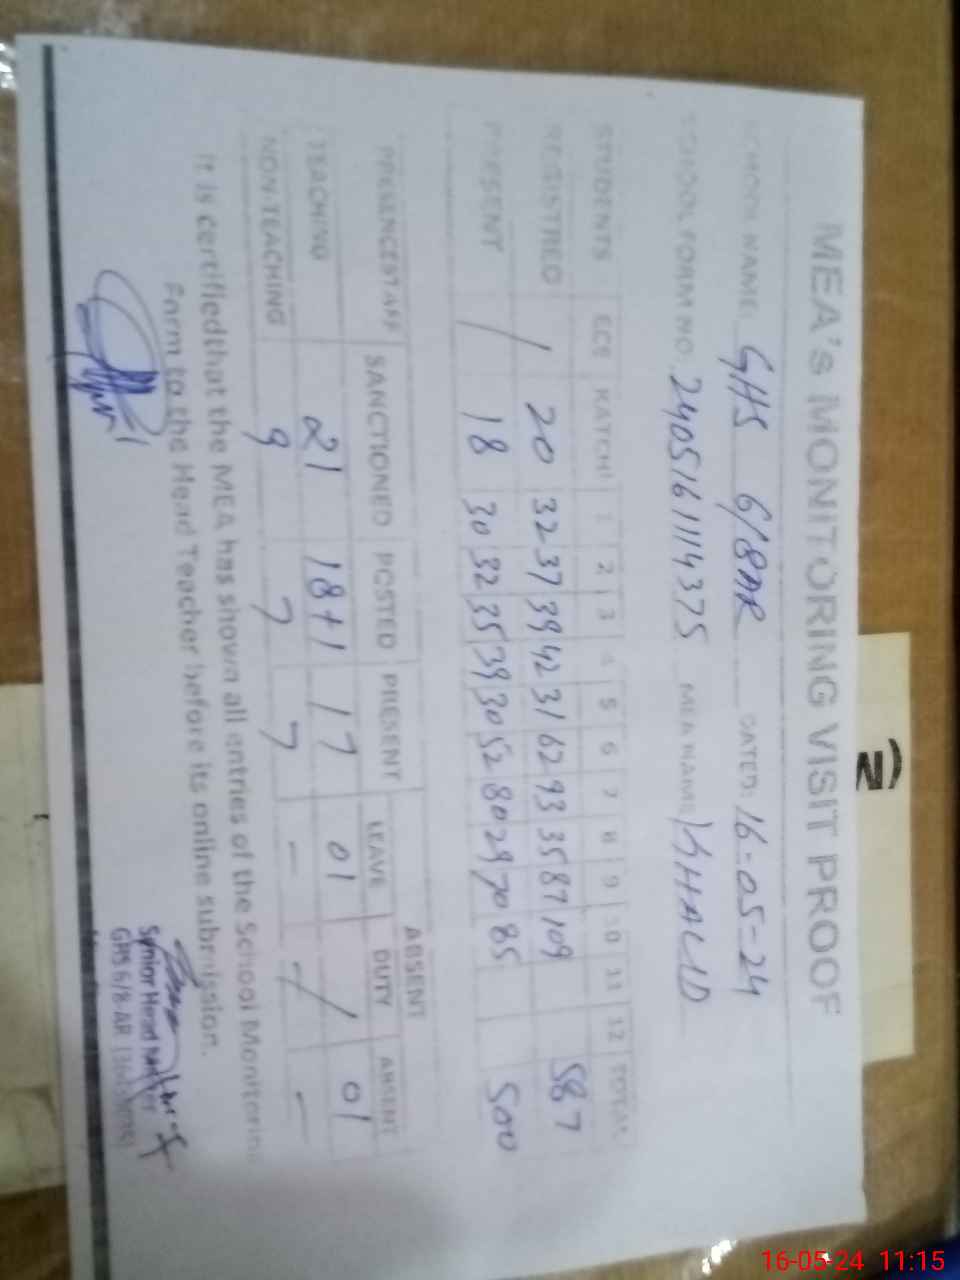 MEA's MONITORING VISIT PROOF
SCHOOL NAME: GHS 6/8AR DATED: 16-05-24
SCHOOL FORM NO. 24051611114375 MEA NAME KHALID
STUDENTS ECE KATCHI 1 2 3 4 5 6 7 8 9 10 11 12 TOTAL
REGISTRED / 20 32 37 39 42 31 62 93 35 87 109 587
PRESENT / 18 30 32 35 39 30 52 80 29 70 85 500
PRESENCESTAFF SANCTIONED POSTED PRESENT ABSENT
LEAVE DUTY ABSENT
TEACHING 21 18+1 17 01 / 01
NON-TEACHING 9 7 7 - - -
It is certifiedthat the MEA has shown all entries of the School Monitoring
Form to the Head Teacher before its online submission.
Senior Head Master
GHS 6/8-AR
16-05-24 11:15